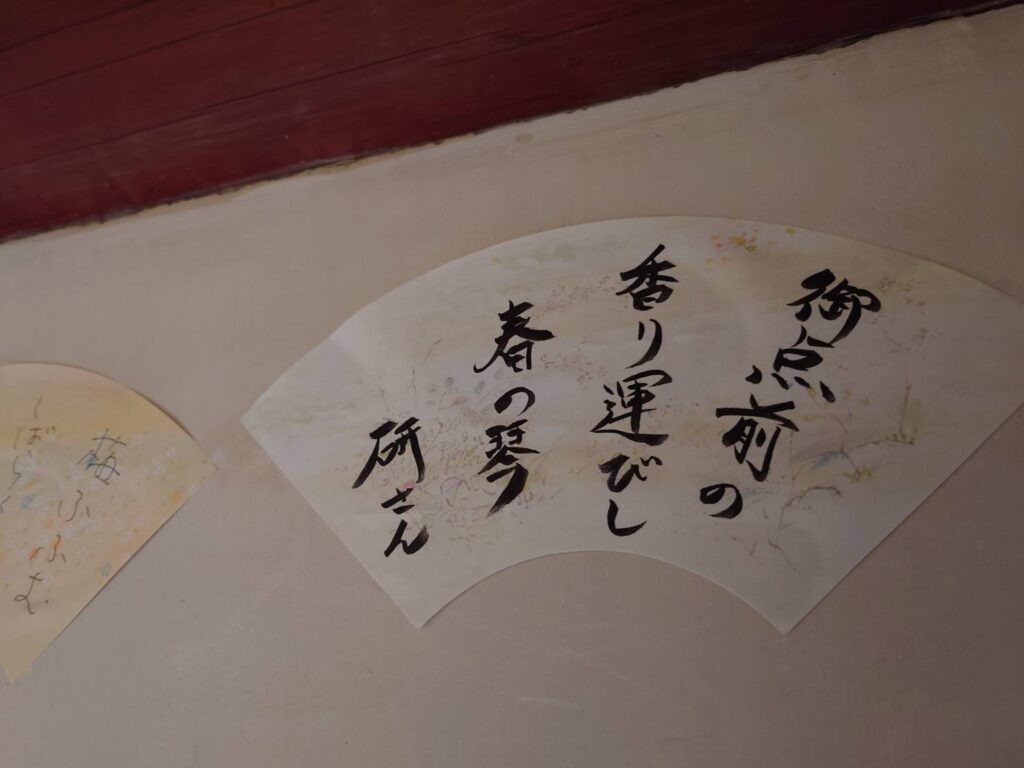 御点前の
香り運びし
春の琴
研さん
梅ふふむ
しばらく